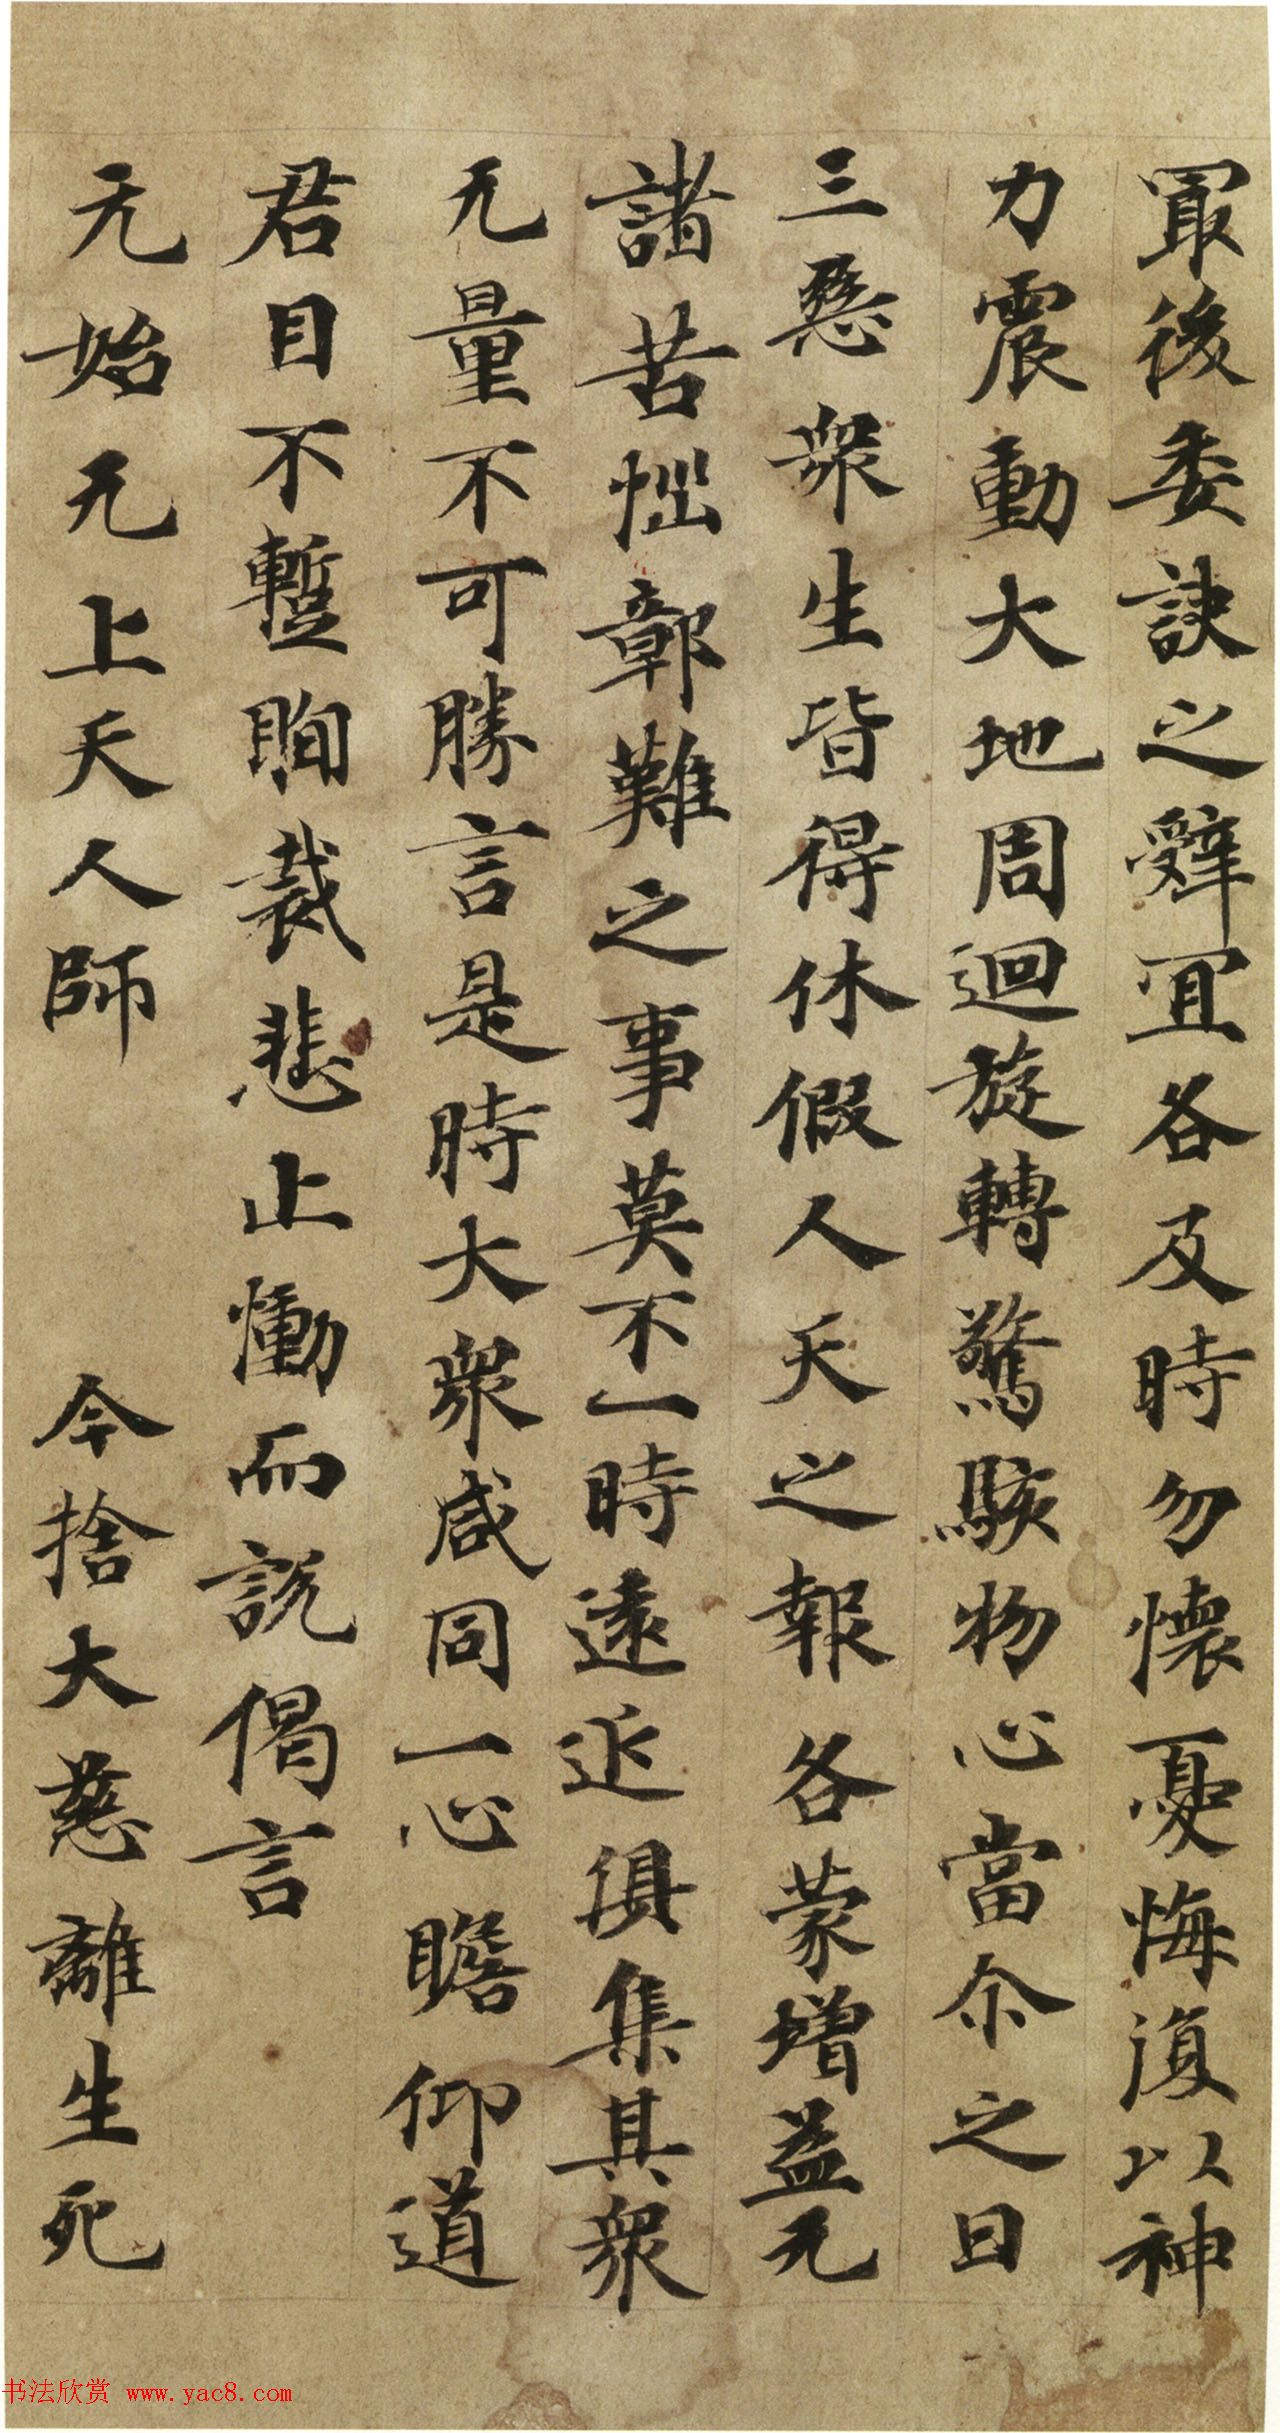 冣後委訣之辝宜各及時勿懷憂悔復以神
力震動大地周迴旋轉驚駭物心當尒之日
三惡衆生皆得休假人天之報各蒙增益无
諸苦惱鄣難之事莫不一時遠近俱集其衆
无量不可勝言是時大衆咸同一心瞻仰道
君目不蹔眴裁悲止慟而說偈言
无始无上天人師 今捨大慈離生死
书法欣赏 www.yac8.com